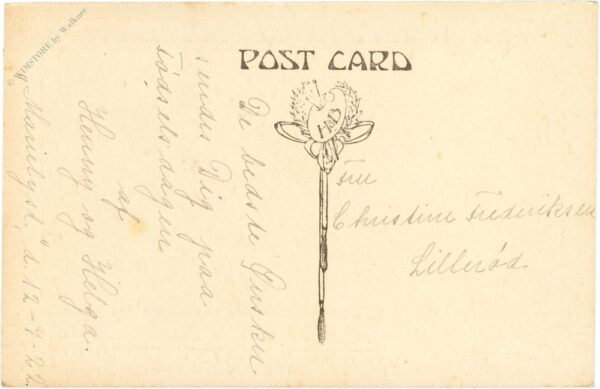 POST CARD
HMB
De bedste Ønsker
sendes Dig paa
Fødselsdagen
af
Henny og Helga.
"Marielyst" d. 12-9-22.
Fru
Christine Frederiksen
Lillerød
STORE by Walkner